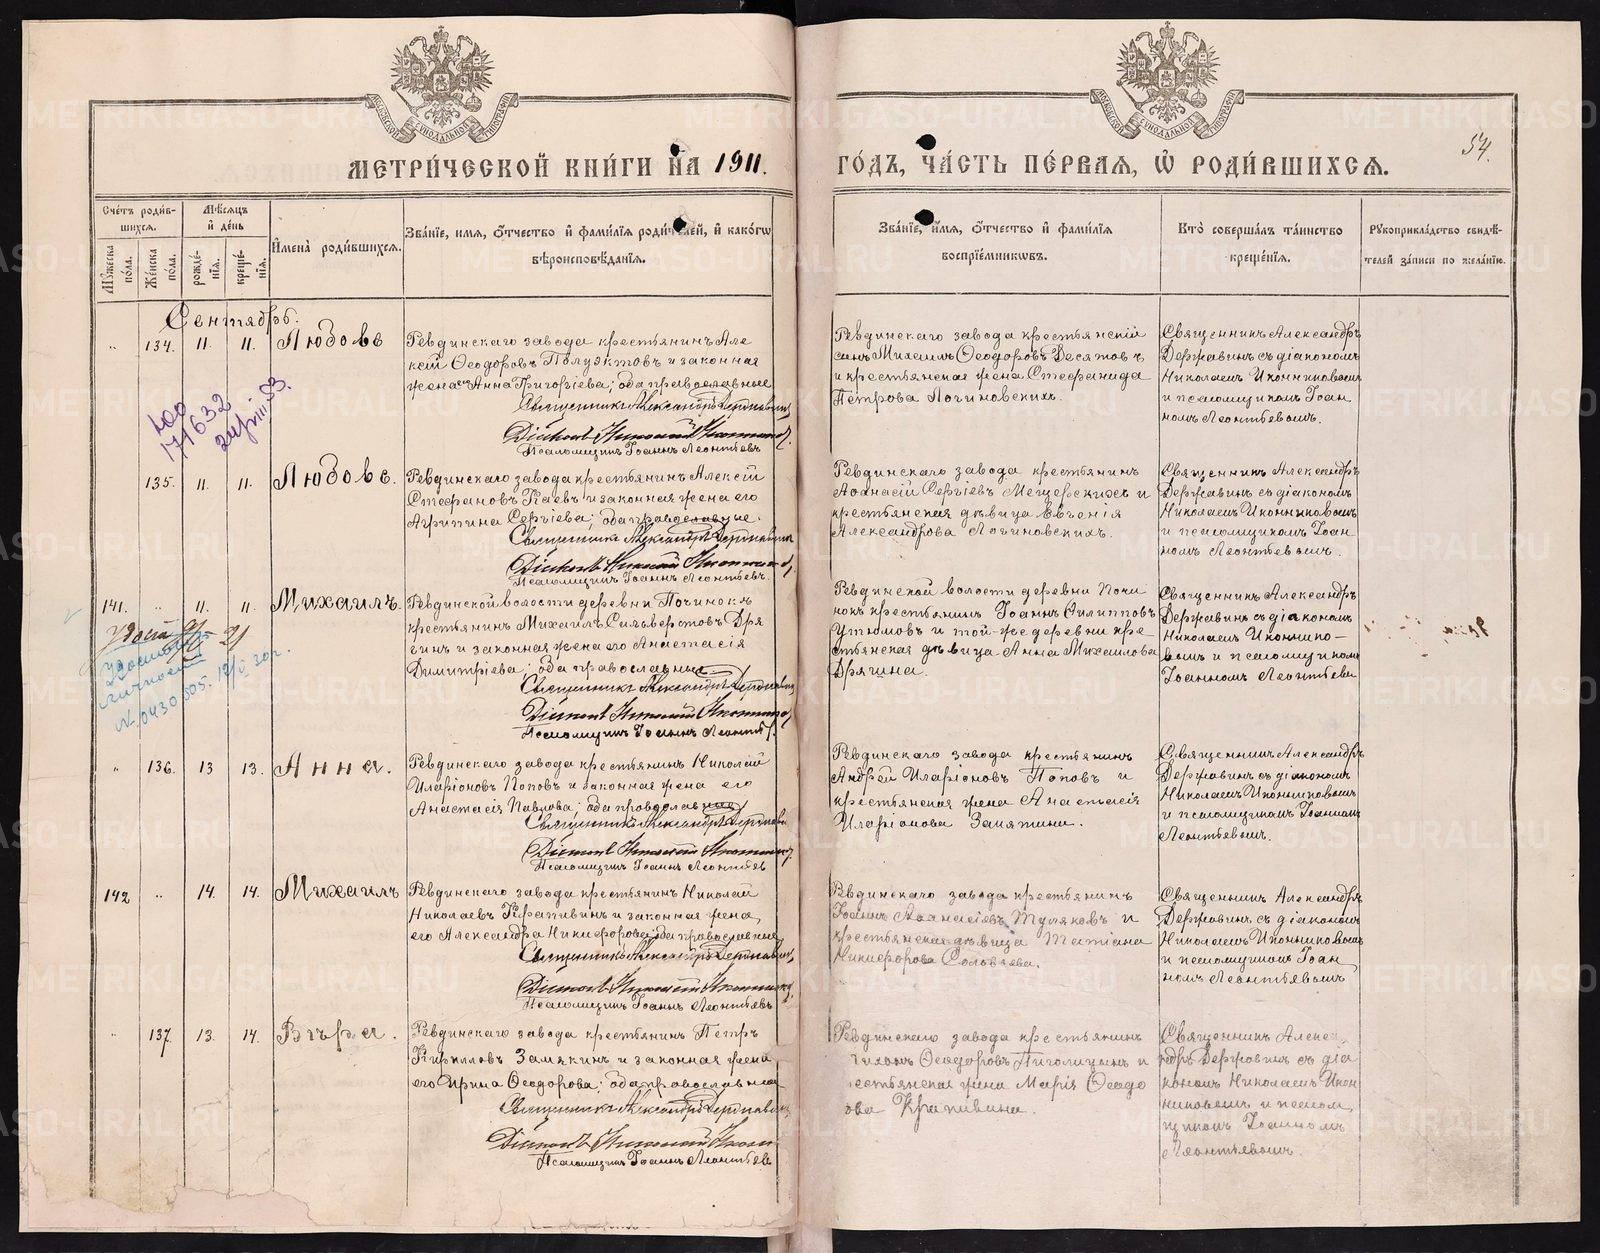 МЕТРИ́ЧЕСКОЙ КНИ́ГИ НА 1911.
ГО́ДЪ, ЧА́СТЬ ПЕ́РВАЯ, Ѡ РОДИ́ВШИХСЯ.
54.
Сче́тъ роди́в-
шихся.
Мѣ́сяцъ
и де́нь
Му́жеска по́ла.
Же́нска по́ла.
рожде́-
нїя.
креще́-
нїя.
И҆мена̀ роди́вшихсѧ.
Зва́нїе, имя, ѻ҆́тчество и҆ фами́лїя роди́телей, и҆ како́гѡ
вѣроисповѣ́данїя.
Зва́нїе, и҆́мя, ѻ҆́тчество и҆ фами́лїя
воспрїе́мникѡвъ.
Кто̀ соверша́лъ та́инство
креще́нїя.
Рꙋкоприкла́дство свидѣ́-
телей за́писи по жела́нїю.
Сентябрь.
" 134. 11. 11. Любовь
Ревдинскаго завода крестьянинъ Але
ксѣй Ѳеодоровъ Полуэктовъ и законная
жена его Анна Григорiева; оба православные
Священникъ Александръ Державинъ
Дiаконъ Николай Иконниковъ
Псаломщикъ Iоаннъ Леонтьевъ
Ревдинскаго завода крестьянскiй
сынъ Михаилъ Ѳеодоровъ Десятовъ
и крестьянская жена Стефанида
Петрова Логиновскихъ.
Священникъ Александръ
Державинъ съ дiакономъ
Николаемъ Иконниковымъ
и псаломщикомъ Iоан
номъ Леонтьевымъ.
135. 11. 11. Любовь.
Ревдинскаго завода крестьянинъ Алексѣй
Стефановъ Паевъ и законная жена его
Агрипина Сергiева; оба православные.
Священникъ Александръ Державинъ
Дiаконъ Николай Иконниковъ
Псаломщикъ Iоаннъ Леонтьевъ.
Ревдинскаго завода крестьянинъ
Аѳанасiй Сергiевъ Мещерскихъ и
крестьянская дѣвица Евгенiя
Александрова Логиновскихъ.
Священникъ Александръ
Державинъ съ дiакономъ
Николаемъ Иконниковымъ
и псаломщикомъ Iоан
номъ Леонтьевымъ.
141. " 11. 11. Михаилъ.
Ревдинской волости деревни Починокъ
крестьянинъ Михаилъ Сильверстовъ Дря
гинъ и законная жена его Анастасiя
Димитрiева; оба православные
Священникъ Александръ Державинъ
Дiаконъ Николай Иконниковъ
Псаломщикъ Iоаннъ Леонтьевъ
Ревдинской волости деревни Почи
нокъ крестьянинъ Iоаннъ Филипповъ
Утюмовъ и той-же деревни кре
стьянская дѣвица Анна Михаилова
Дрягина.
Священникъ Александръ
Державинъ съ дiакономъ
Николаемъ Иконнико-
вымъ и псаломщикомъ
Iоанномъ Леонтьевы
" 136. 13 13. Анна.
Ревдинскаго завода крестьянинъ Николай
Иларiоновъ Поповъ и законная жена его
Анастасiя Павлова; оба православные
Священникъ Александръ Державинъ
Дiаконъ Николай Иконниковъ
Псаломщикъ Iоаннъ Леонтьевъ
Ревдинскаго завода крестьянинъ
Андрей Иларiоновъ Поповъ и
крестьянская жена Анастасiя
Иларiонова Замятина.
Священникъ Александръ
Державинъ съ дiакономъ
Николаемъ Иконниковымъ
и псаломщикомъ Iоанномъ
Леонтьевымъ.
142 " 14. 14. Михаилъ
Ревдинскаго завода крестьянинъ Николай
Николаевъ Крапивинъ и законная жена
его Александра Никифорова; оба православные
Священникъ Александръ Державинъ
Дiаконъ Николай Иконниковъ
Псаломщикъ Iоаннъ Леонтьевъ
Ревдинскаго завода крестьянинъ
Iоаннъ Аѳанасiевъ Туляковъ и
крестьянская дѣвица Татiана
Никифорова Соловьева.
Священникъ Александръ
Державинъ съ дiакономъ
Николаемъ Иконниковымъ
и псаломщикомъ Iоан
номъ Леонтьевымъ
" 137. 13. 14. Вѣра.
Ревдинскаго завода крестьянинъ Петръ
Кирилловъ Замякинъ и законная жена
его Ирина Ѳеодорова; оба православные
Священникъ Александръ Державинъ
Дiаконъ Николай Иконн
Псаломщикъ Iоаннъ Леонтьевъ
Ревдинскаго завода крестьянинъ
Тихонъ Ѳеодоровъ Пиголицынъ и
рестьянская жена Марiя Ѳеодо
ова Крапивина.
Священникъ Алекс
ндръ Державинъ съ дiа
кономъ Николаемъ Икон
никовымъ и псалом
щикомъ Iоанномъ
Леонтьевымъ.
171632
личности
METRIKI.GASO-URAL.RU